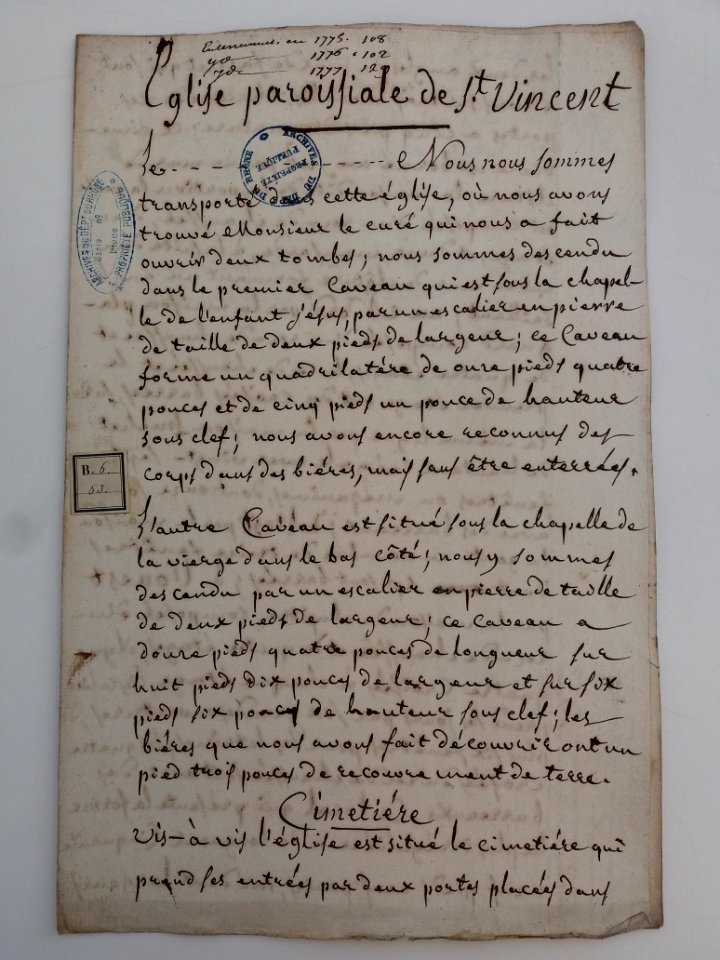 Enterremens en 1775. 108
yd 1776. 102
yd 1777. 129
Eglise paroissiale de St. Vincent
Le - - - - - - - - Nous nous sommes
transporté dans cette église, où nous avons
trouvé Monsieur le curé qui nous a fait
ouvrir deux tombes; nous sommes descendu
dans le premier Caveau qui est sous la chapel-
le de l'enfant jésus, par un escalier en pierre
de taille de deux pieds de largeur; ce Caveau
forme un quadrilatére de onze pieds quatre
pouces et de cinq pieds un pouce de hauteur
sous clef; nous avons encore reconnus des
corps dans des biéres, mais sans être enterrées.
L'autre Caveau est situé sous la chapelle de
la vierge dans le bas côté; nous y sommes
descendu par un escalier en pierre de taille
de deux pieds de largeur; ce caveau a
douze pieds quatre pouces de longueur sur
huit pieds dix pouces de largeur et sur six
pieds six pouces de hauteur sous clef; les
biéres que nous avons fait découvrir ont un
pied trois pouces de recouvrement de terre.
Cimetiére
vis-à vis l'église est situé le cimetiére qui
prend ses entrées par deux portes placées dans
ARCHIVES DU DEPT DU RHÔNE
PROPRIÉTÉ PUBLIQUE
ARCHIVES DU DÉPT DU RHÔNE
PROPRIÉTÉ PUBLIQUE
B. 6.
53.